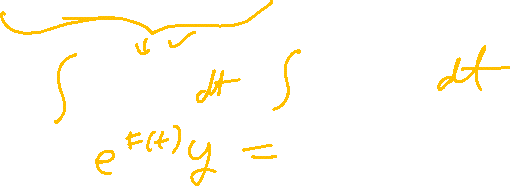 ∫ dt ∫ dt
e^{F(t)} y =